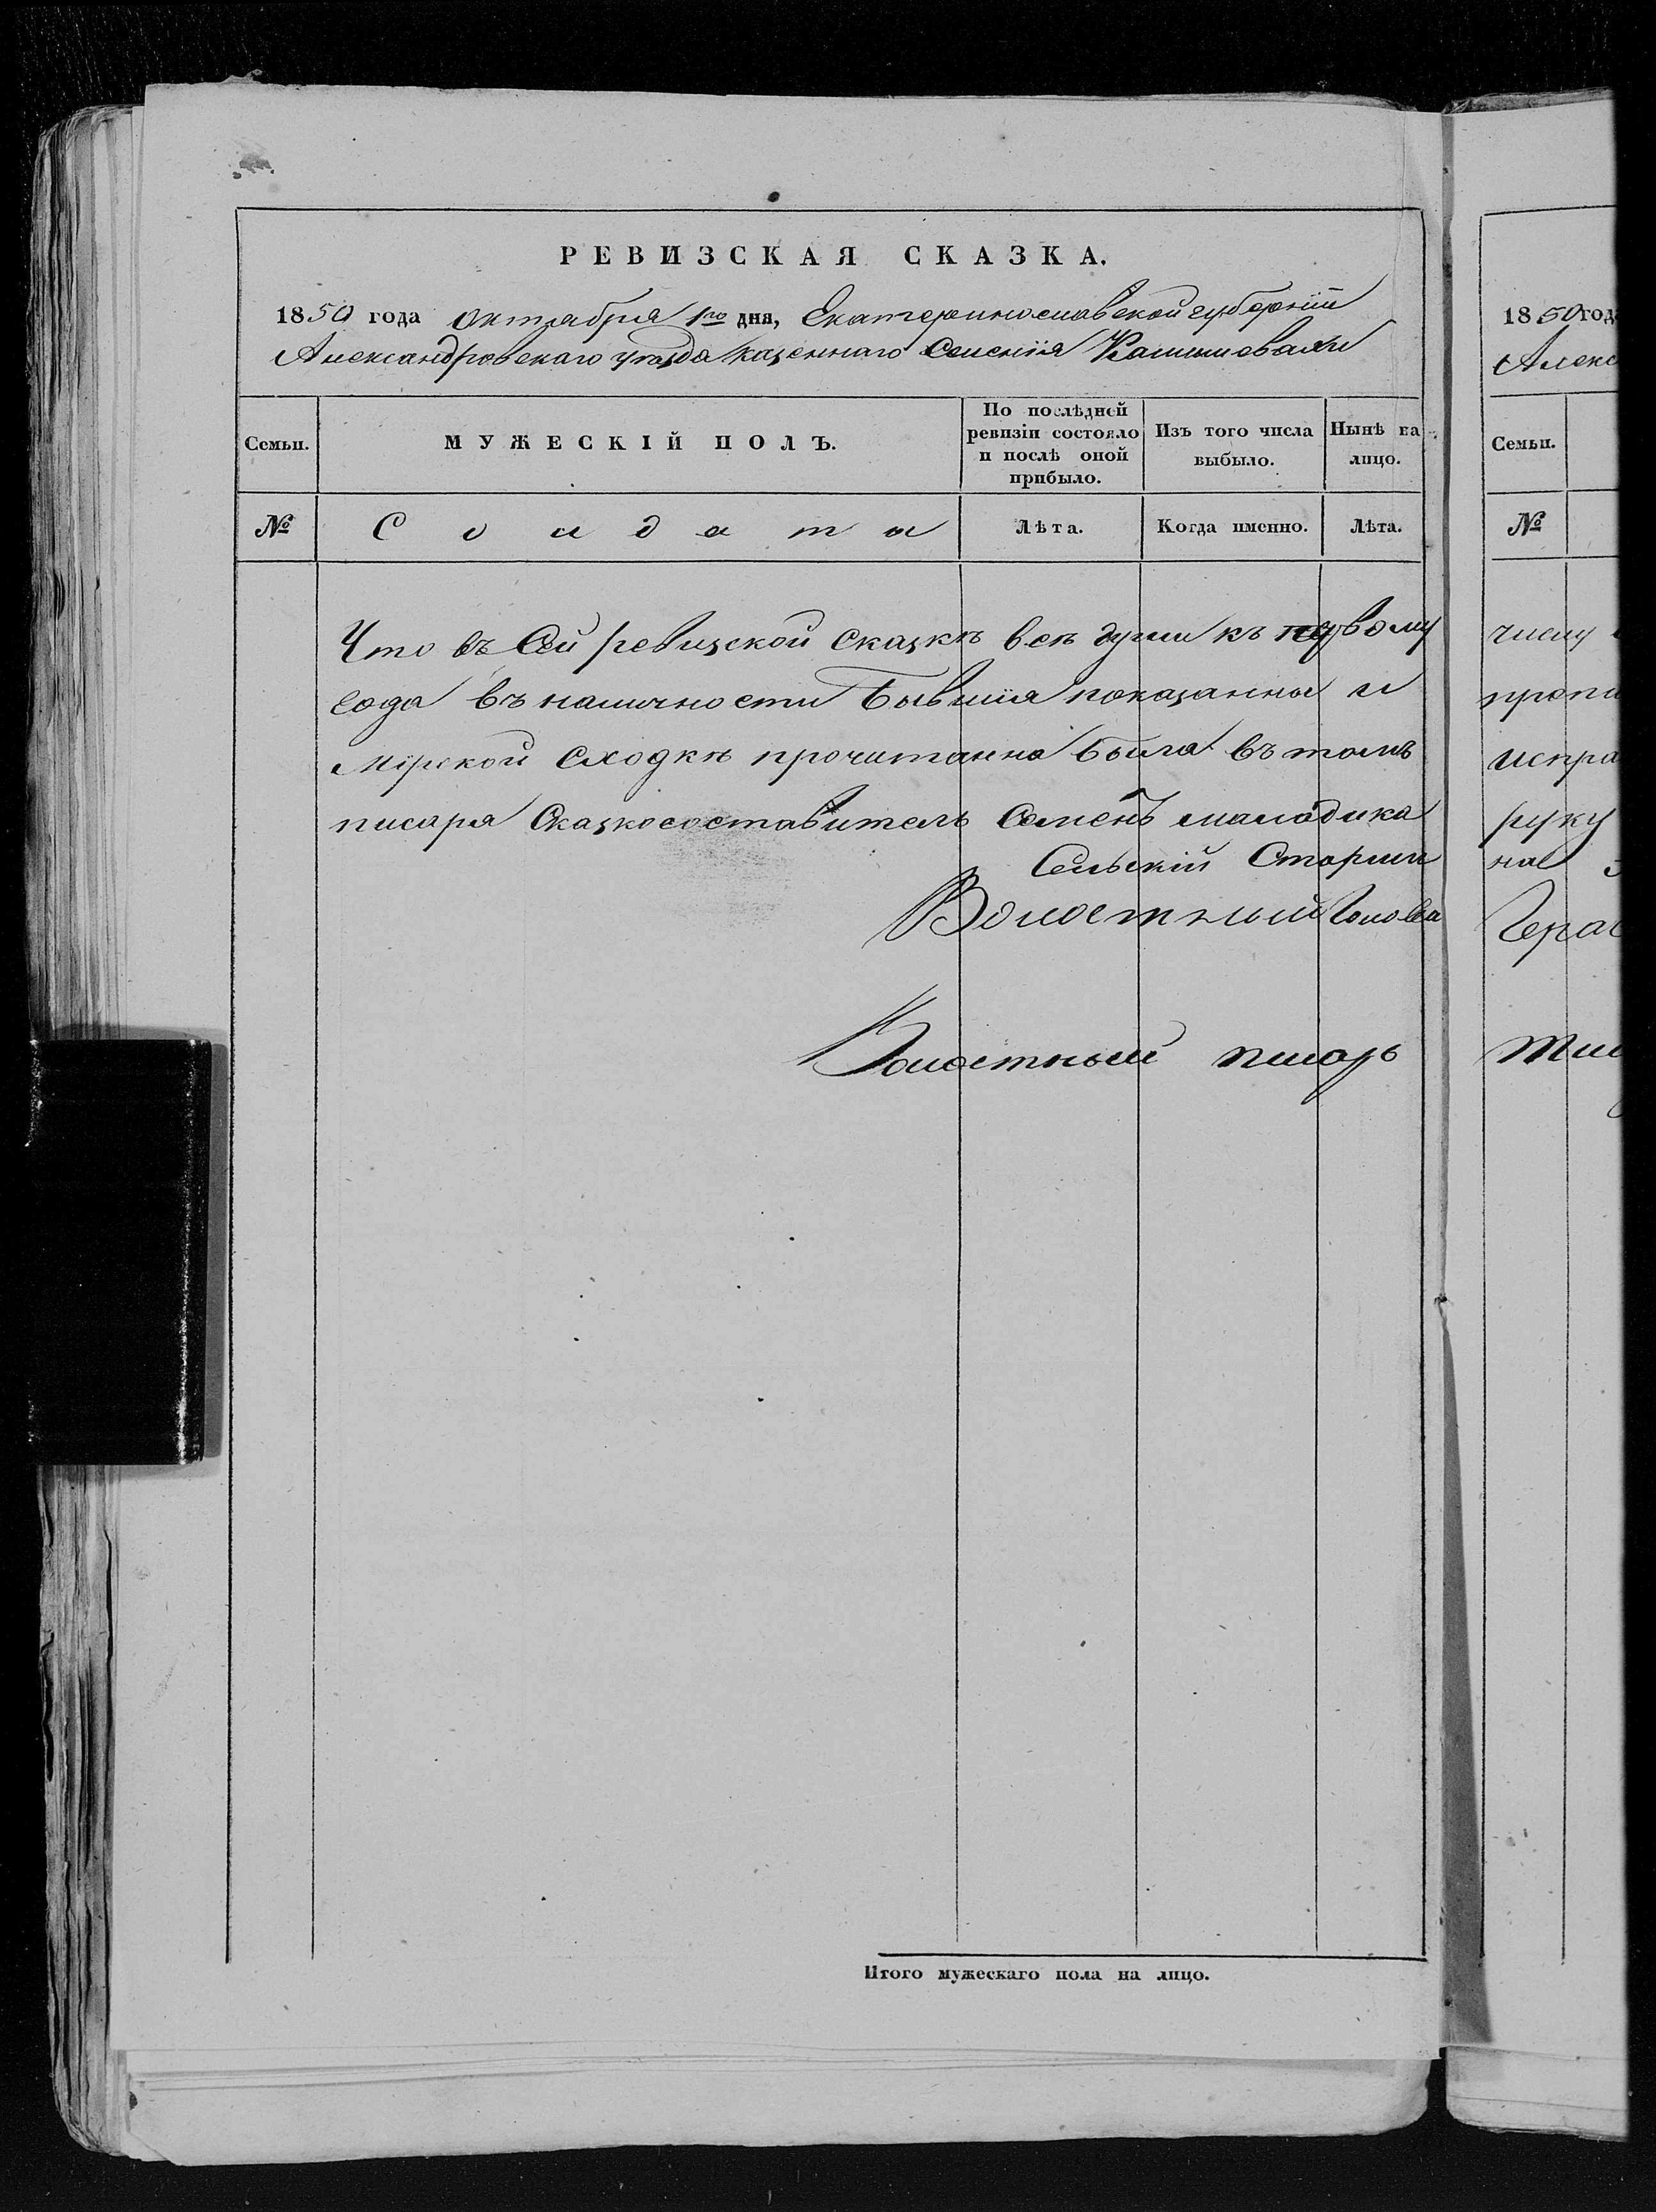 РЕВИЗСКАЯ СКАЗКА.
1850 года октября 1го дня, Екатеринославской губернiи
Александровскаго уѣзда казеннаго Селенiя Камышевахи
Семьи.
МУЖЕСКІЙ ПОЛЪ.
По послѣдней ревизіи состояло и послѣ оной прибыло.
Изъ того числа выбыло.
Нынѣ на лицо.
№
Солдаты
Лѣта.
Когда именно.
Лѣта.
Что въ Сей ревизской Сказкѣ всѣ души къ первому
года въ наличности Бывшiя показанны и
Мiрской Сходкѣ прочитанна Была въ томъ
писаря Сказкосоставитель Семенъ малодика
Сельскiй Старши
Волостный Голова
Волостный писарь
Итого мужескаго пола на лицо.
1850 год
Алекс
Семьи.
№
числу
пропи
испра
руку
на
Гера